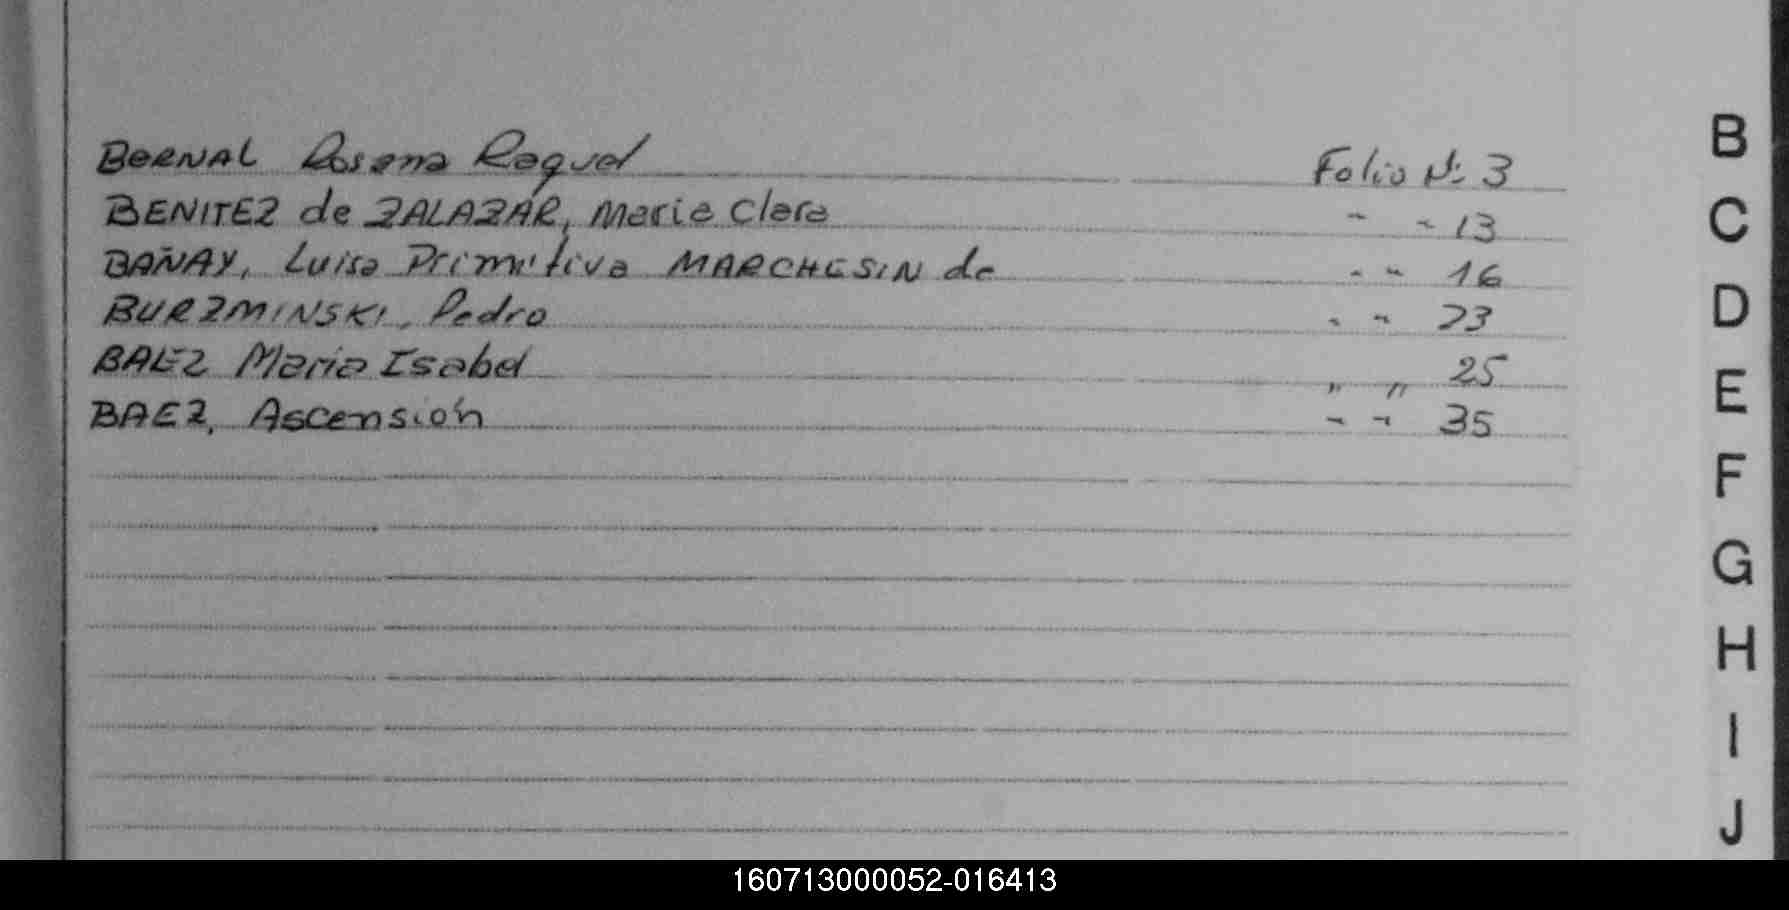 BERNAL Rosana Raquel Folio Nº 3
BENITEZ de ZALAZAR, Maria Clara " " 13
BAÑAY, Luisa Primitiva MARCHESIN de " " 16
BURZMINSKI, Pedro " " 23
BAEZ Maria Isabel " " 25
BAEZ, Ascensión " " 35
B
C
D
E
F
G
H
I
J
160713000052-016413